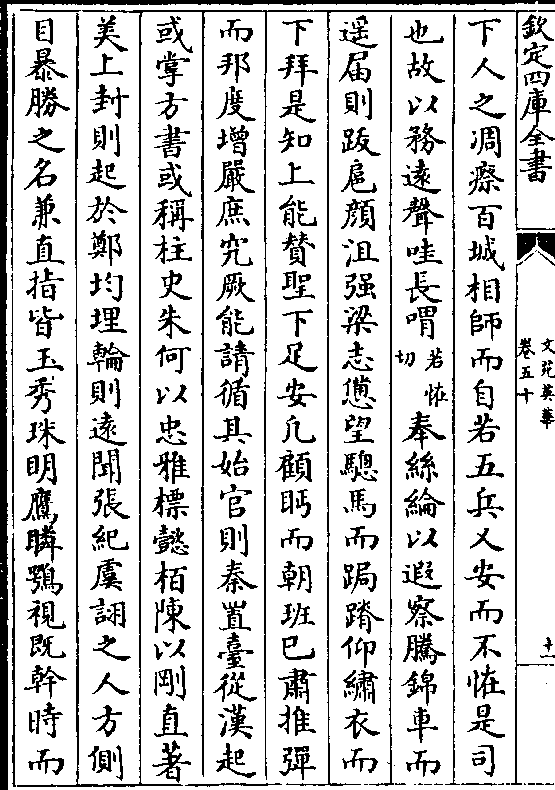 欽定四庫全書
文苑英華
卷五十
十一
下人之凋瘵百城相師而自若五兵乂安而不恠是司
也故以務遠聲哇長喟
若恠
切
奉絲綸以遐察騰錦車而
遥届則跋扈顔沮强梁志憊望驄馬而跼蹐仰繡衣而
下拜是知上能賛聖下足安凡顧眄而朝班已肅推彈
而邦度增嚴庶究厥能請循其始官則秦置臺從漢起
或掌方書或稱柱史朱何以忠雅標懿栢陳以剛直著
美上封則起於鄭均埋輪則遠聞張紀虞詡之人方側
目暴勝之名兼直指皆玉秀珠明鷹瞵鶚視既幹時而